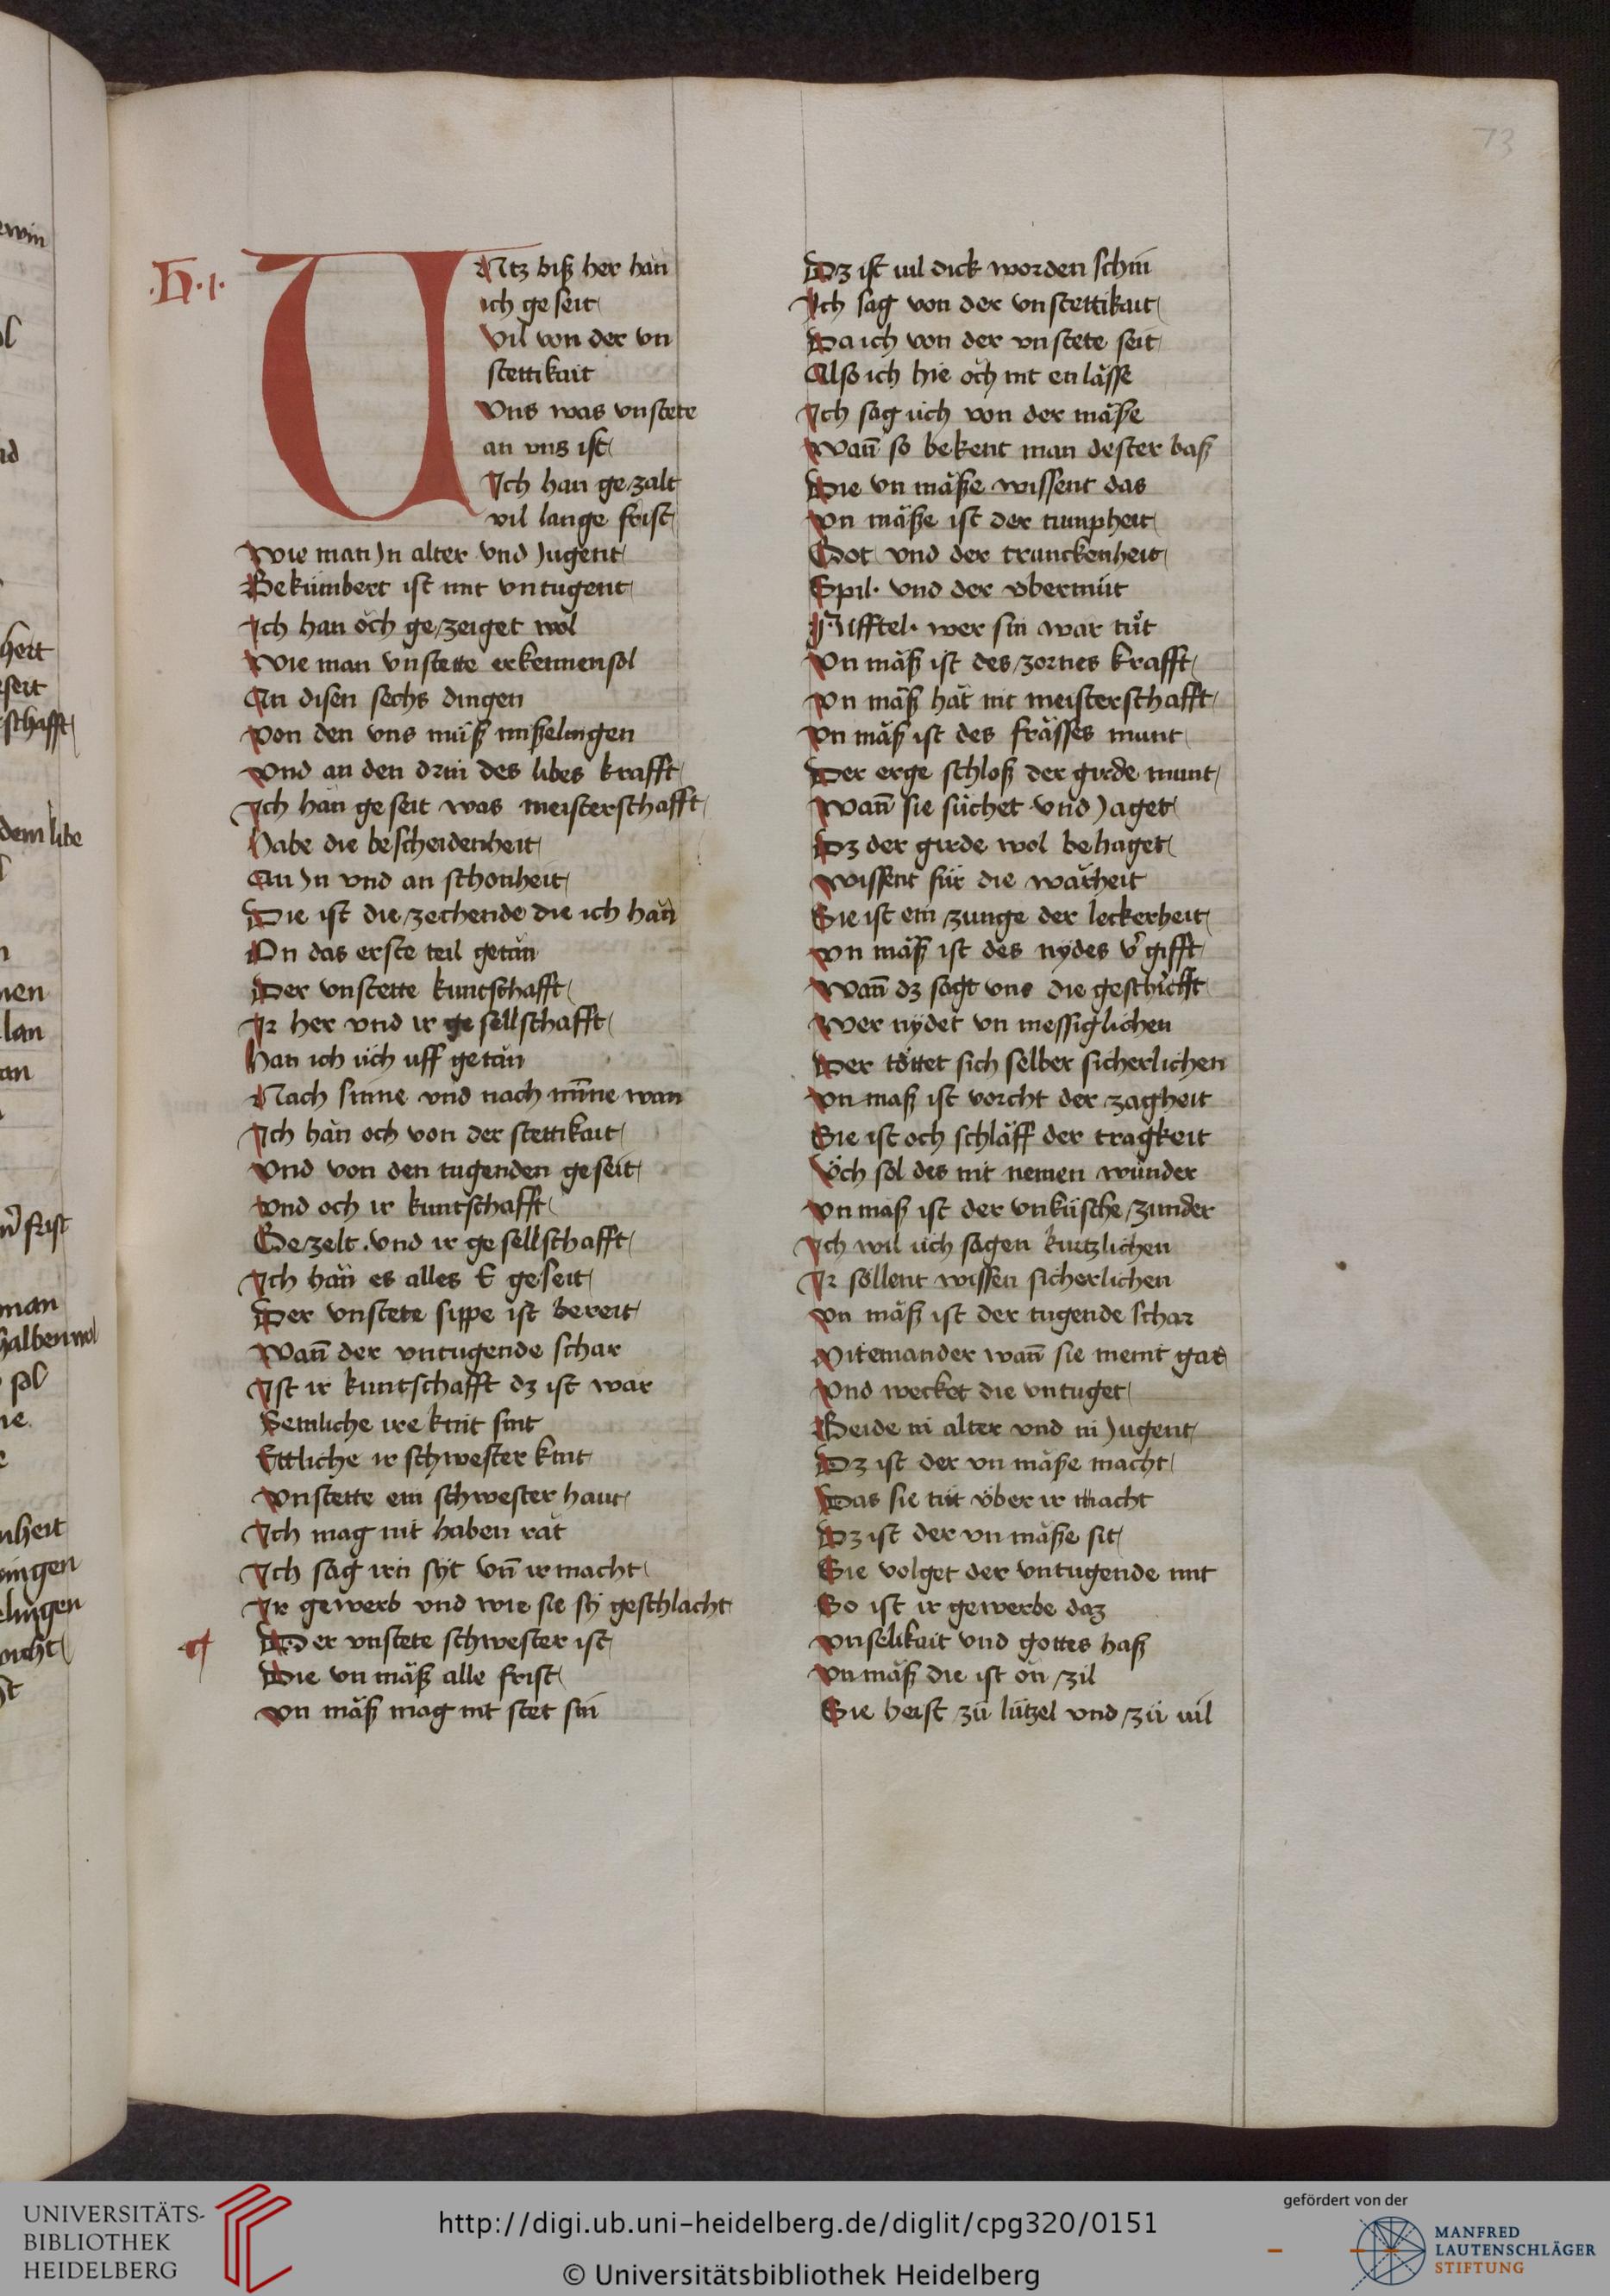 73
.H.1.
UNtz bisz her han
ich geseit
Vil von der vn
stettikait
Vns was vnstete
an vns ist
Ich han gezalt
vil lange frist
Wie man Jn alter vnd Jugent
Bekümbert ist mit vntugent
Ich han öch gezeiget wol
Wie man vnstette erkennen sol
An disen sechs dingen
Von den vns müsz miszelingen
Vnd an den drin des libes krafft
Ich han geseit was meisterschafft
Habe die bescheidenheit
An Jn vnd an schonheit
Die ist die zechende die ich han
On das erste teil getan
Der vnstette kuntschafft
Ir her vnd ir gesellschafft
Han ich üch uff getan
Nach sinne vnd nach mīne wan
Ich han och von der stettikait
Vnd von den tugenden geseit
Vnd och ir kuntschafft
Gezelt. vnd ir gesellschafft
Ich han es alles E geseit
Der vnstete sippe ist bereit
Wañ der vntugende schar
Ist ir kuntschafft dz ist war
Semliche ire kint sint
Ettliche ir schwester kint
Vnstette ein schwester haut
Ich mag nit haben rät
Ich sag irn syt vñ ir macht
Ir gewerb vnd wie sie sy geschlacht
Der vnstete schwester ist
Die vn mäsz alle frist
Vn mäsz mag nit stet sin
Dz ist uil dick worden schin
Ich sag von der vnstettikait
Da ich von der vnstete seit
Also ich hie öch nit en lässe
Ich sag üch von der mäsze
Wañ so bekent man dester basz
Die vn mäsze wissent das
Vn mäsze ist der tumpheit
Bot vnd der trunckenheit
Spil. vnd der vbermüt
wer sin war tüt
Vn mäsz ist des zornes krafft
Vn mäsz hät nit meisterschafft
Vn mäsz ist des frässes munt
Der erge schlosz der girde munt
Wañ sie süchet vnd Jaget
Dz der girde wol behaget
Wissent für die wärheit
Sie ist ein zunge der leckerheit
Vn mäsz ist des nydes v̾gifft
Wañ dz sagt vns die geschrifft
Wer nydet vn messiglichen
Der töttet sich selber sicherlichen
Vn masz ist vorcht der zagheit
Sie ist och schläff der tragkeit
Vch sol des nit nemen wünder
Vn mäsz ist der vnküsche zunder
Ich wil üch sagen kurtzlichen
Ir söllent wissen sicherlichen
Vn mäsz ist der tugende schar
Vitemander wañ sie nemt gar
Vnd wecket die vntuget
Beide in alter vnd in Jugent
Dz ist der vn mäsze macht
Das sie tüt über ir macht
Dz ist der vn mäsze sit
Sie volget der vntugende mit
So ist ir gewerbe daz
Vnselikait vnd gottes hasz
Vn mäsz die ist on zil
Sie heist zü lützel vnd zü uil
UNIVERSITÄTS-
BIBLIOTHEK
HEIDELBERG
http://digi.ub.uni-heidelberg.de/diglit/cpg320/0151
© Universitätsbibliothek Heidelberg
gefördert von der
MANFRED
LAUTENSCHLÄGER
STIFTUNG